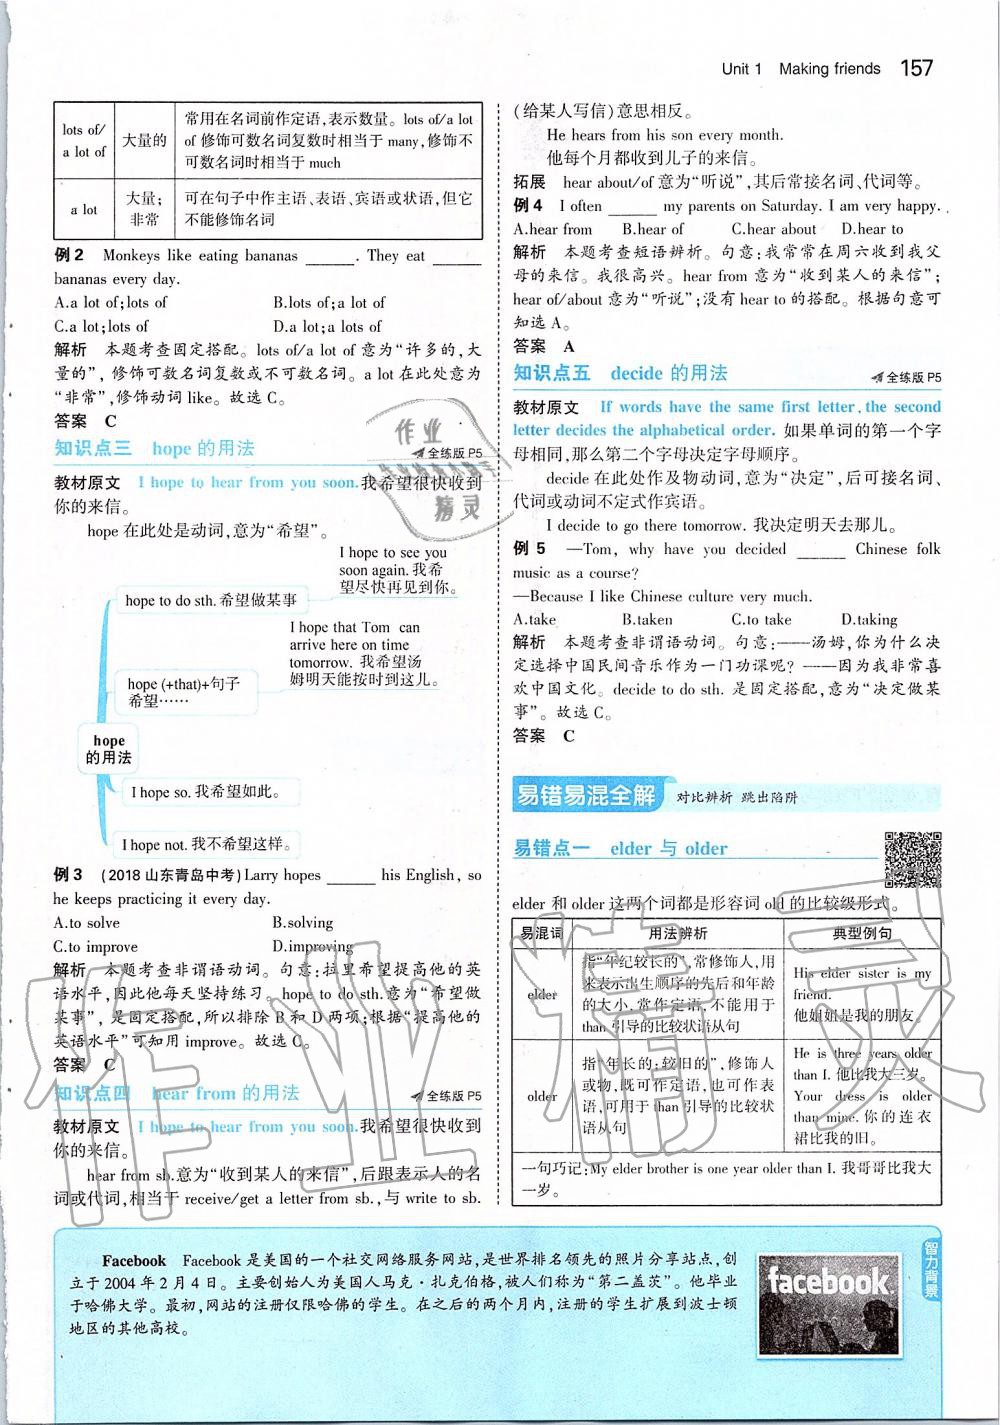 Unit 1 Making friends 157
lots of/
a lot of
大量的
常用在名词前作定语,表示数量。lots of/a lot
of 修饰可数名词复数时相当于 many,修饰不
可数名词时相当于 much
a lot
大量;
非常
可在句子中作主语、表语、宾语或状语,但它
不能修饰名词
例2 Monkeys like eating bananas ______. They eat ______
bananas every day.
A.a lot of;lots of B.lots of;a lot of
C.a lot;lots of D.a lot;a lot of
解析 本题考查固定搭配。lots of/a lot of 意为“许多的,大
量的”,修饰可数名词复数或不可数名词。a lot 在此处意为
“非常”,修饰动词 like。故选 C。
答案 C
知识点三 hope 的用法 全练版 P5
教材原文 I hope to hear from you soon.我希望很快收到
你的来信。
hope 在此处是动词,意为“希望”。
hope 的用法
hope to do sth.希望做某事
I hope to see you
soon again.我希
望尽快再见到你。
hope (+that)+句子
希望……
I hope that Tom can
arrive here on time
tomorrow. 我希望汤
姆明天能按时到这儿。
I hope so.我希望如此。
I hope not.我不希望这样。
例3 (2018 山东青岛中考) Larry hopes ______ his English, so
he keeps practicing it every day.
A.to solve B.solving
C.to improve D.improving
解析 本题考查非谓语动词。句意:拉里希望提高他的英
语水平,因此他每天坚持练习。hope to do sth.意为“希望做
某事”,是固定搭配,所以排除 B 和 D 两项;根据“提高他的
英语水平”可知用 improve。故选 C。
答案 C
知识点四 hear from 的用法 全练版 P5
教材原文 I hope to hear from you soon.我希望很快收到
你的来信。
hear from sb.意为“收到某人的来信”,后跟表示人的名
词或代词,相当于 receive/get a letter from sb.,与 write to sb.
(给某人写信)意思相反。
He hears from his son every month.
他每个月都收到儿子的来信。
拓展 hear about/of 意为“听说”,其后常接名词、代词等。
例4 I often ______ my parents on Saturday. I am very happy.
A.hear from B.hear of C.hear about D.hear to
解析 本题考查短语辨析。句意:我常常在周六收到我父
母的来信。我很高兴。hear from 意为“收到某人的来信”;
hear of/about 意为“听说”;没有 hear to 的搭配。根据句意可
知选 A。
答案 A
知识点五 decide 的用法 全练版 P5
教材原文 If words have the same first letter, the second
letter decides the alphabetical order. 如果单词的第一个字
母相同,那么第二个字母决定字母顺序。
decide 在此处作及物动词,意为“决定”,后可接名词、
代词或动词不定式作宾语。
I decide to go there tomorrow. 我决定明天去那儿。
例5 —Tom, why have you decided ______ Chinese folk
music as a course?
—Because I like Chinese culture very much.
A.take B.taken C.to take D.taking
解析 本题考查非谓语动词。句意:——汤姆,你为什么决
定选择中国民间音乐作为一门功课呢? ——因为我非常喜
欢中国文化。decide to do sth. 是固定搭配,意为“决定做某
事”。故选 C。
答案 C
易错易混全解 对比辨析 跳出陷阱
易错点一 elder 与 older
elder 和 older 这两个词都是形容词 old 的比较级形式。
易混词 用法辨析 典型例句
elder
指“年纪较长的”,常修饰人,用
来表示出生顺序的先后和年龄
的大小,常作定语,不能用于
than 引导的比较状语从句
His elder sister is my
friend.
他姐姐是我的朋友。
older
指“年长的;较旧的”,修饰人
或物,既可作定语,也可作表
语,可用于 than 引导的比较状
语从句
He is three years older
than I. 他比我大三岁。
Your dress is older
than mine. 你的连衣
裙比我的旧。
一句巧记:My elder brother is one year older than I. 我哥哥比我大
一岁。
Facebook Facebook 是美国的一个社交网络服务网站,是世界排名领先的照片分享站点,创
立于 2004 年 2 月 4 日。主要创始人为美国人马克·扎克伯格,被人们称为“第二盖茨”。他毕业
于哈佛大学。最初,网站的注册仅限哈佛的学生。在之后的两个月内,注册的学生扩展到波士顿
地区的其他高校。
facebook.
智力背景
作业
精灵
作业精灵